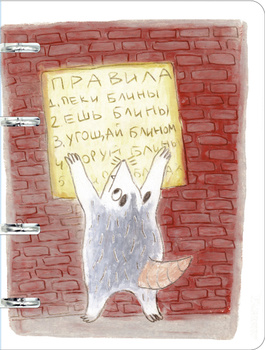 ПРАВИЛА
1. ПЕКИ БЛИНЫ
2 ЕШЬ БЛИНЫ
3. УГОЩАЙ БЛИНОМ
ВОРУЙ БЛИНЫ
5.